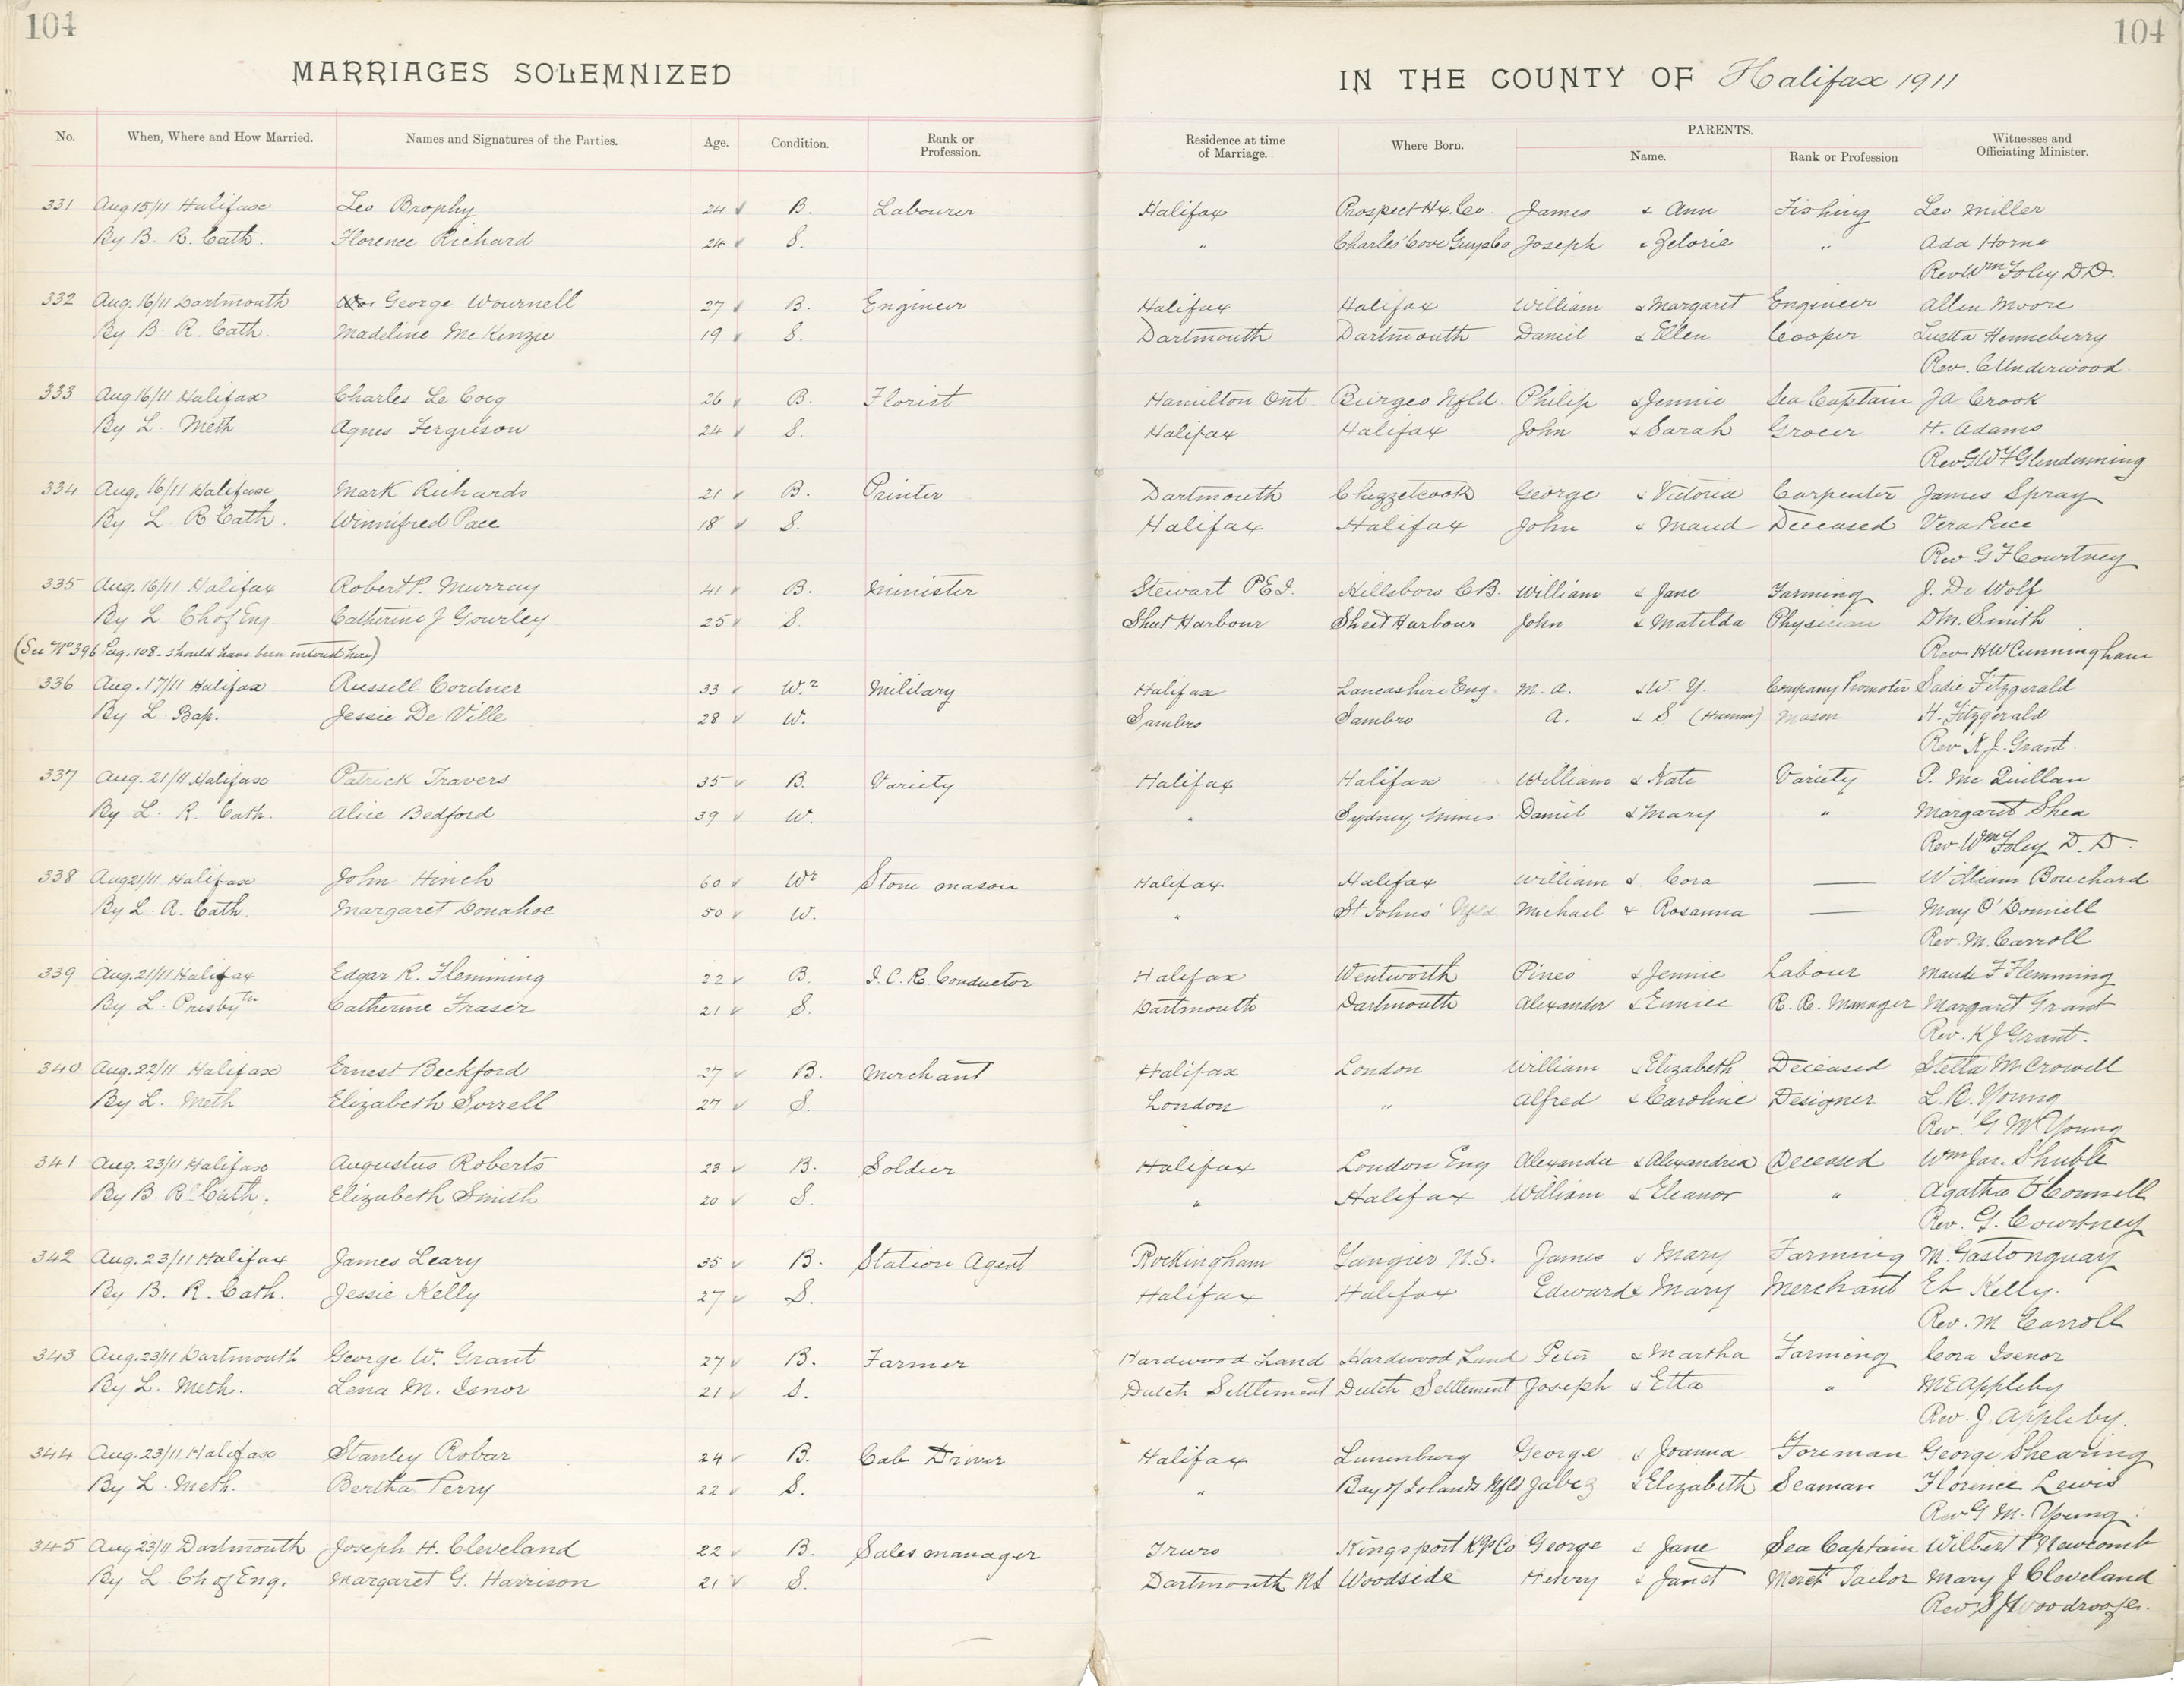 104
104
MARRIAGES SOLEMNIZED IN THE COUNTY OF Halifax 1911
No. When, Where and How Married. Names and Signatures of the Parties. Age. Condition. Rank or Profession. Residence at time of Marriage. Where Born. PARENTS. Name. Rank or Profession Witnesses and Officiating Minister.
331 Aug 15/11 Halifax Leo Brophy 24 B. Labourer Halifax Prospect Hx. Co. James & Ann Fishing Leo Miller
By B. R. Cath. Florence Richard 24 S. " Charles' Cove Guys Co Joseph & Zelorie " Ada Horne
Rev Wm Foley D.D.
332 Aug. 16/11 Dartmouth George Wournell 27 B. Engineer Halifax Halifax William & Margaret Engineer Allen Moore
By B. R. Cath. Madeline McKenzie 19 S. Dartmouth Dartmouth Daniel & Ellen Cooper Luetta Henneberry
Rev. C Underwood
333 Aug 16/11 Halifax Charles Le Coig 26 B. Florist Hamilton Ont. Burgeo Nfld. Philip & Jennie Sea Captain JA Crook
By L. Meth Agnes Ferguson 24 S. Halifax Halifax John & Sarah Grocer H. Adams
Rev G W F Glendenning
334 Aug. 16/11 Halifax Mark Richards 21 B. Printer Dartmouth Chezzetcook George & Victoria Carpenter James Spray
By L. R Cath. Winnifred Pace 18 S. Halifax Halifax John & Maud Deceased Vera Pace
Rev G F Courtney
335 Aug. 16/11 Halifax Robert P. Murray 41 B. Minister Stewart P.E.I. Hillsboro C.B. William & Jane Farming J. De Wolf
By L. Ch of Eng. Catherine J Gourley 25 S. Sheet Harbour Sheet Harbour John & Matilda Physician D M. Smith
(See No 396 Pag. 108 - should have been entered here) Rev. H W Cunningham
336 Aug. 17/11 Halifax Russell Cordner 33 Wr Military Halifax Lancashire Eng. M. A. & W. Y. Company Promoter Sadie Fitzgerald
By L. Bap. Jessie De Ville 28 W. Sambro Sambro A. & S Mason H. Fitzgerald
Rev K J. Grant.
337 Aug. 21/11 Halifax Patrick Travers 35 B. Variety Halifax Halifax William & Kate Variety P. Mc Quillan
By L. R. Cath. Alice Bedford 39 W. " Sydney Mines Daniel & Mary " Margaret Shea
Rev Wm Foley D.D.
338 Aug 21/11 Halifax John Hinch 60 Wr Stone mason Halifax Halifax William & Cora — William Bouchard
By L. R. Cath. Margaret Donahoe 50 W. " St Johns' Nfld Michael & Rosanna — May O'Donnell
Rev. M. Carroll
339 Aug. 21/11 Halifax Edgar R. Flemming 22 B. I. C. R. Conductor Halifax Wentworth Pineo & Jennie Labour Maude F Flemming
By L. Presbytn Catherine Fraser 21 S. Dartmouth Dartmouth Alexander & Eunice R. R. Manager Margaret Grant
Rev. K J Grant.
340 Aug. 22/11 Halifax Ernest Beckford 27 B. Merchant Halifax London William & Elizabeth Deceased Stella M Crowell
By L. Meth Elizabeth Sorrell 27 S. London " Alfred & Caroline Designer L. R. Young
Rev. G M Young
341 Aug. 23/11 Halifax Augustus Roberts 23 B. Soldier Halifax London Eng Alexander & Alexandria Deceased Wm Jas. Shuble
By B. R Cath. Elizabeth Smith 20 S. " Halifax William & Eleanor " Agatha O'Connell
Rev. G. Courtney
342 Aug. 23/11 Halifax James Leary 35 B. Station Agent Rockingham Tangier N.S. James & Mary Farming M. Gastonguay
By B. R. Cath. Jessie Kelly 27 S. Halifax Halifax Edward & Mary Merchant EL Kelly.
Rev. M Carroll
343 Aug. 23/11 Dartmouth George W. Grant 27 B. Farmer Hardwood Land Hardwood Land Peter & Martha Farming Cora Isenor
By L. Meth. Lena M. Isnor 21 S. Dutch Settlement Dutch Settlement Joseph & Etta " M E Appleby
Rev. J. Appleby.
344 Aug. 23/11 Halifax Stanley Robar 24 B. Cab Driver Halifax Lunenburg George & Joanna Foreman George Shearing
By L. Meth. Bertha Perry 22 S. " Bay of Islands Nfld Jabez & Elizabeth Seaman Florence Lewis
Rev G M. Young.
345 Aug 23/11 Dartmouth Joseph H. Cleveland 22 B. Sales manager Truro Kingsport Kgs Co George & Jane Sea Captain Wilbert P Newcomb
By L. Ch of Eng. Margaret G. Harrison 21 S. Dartmouth NS Woodside Henry & Janet Merct Tailor Mary J Cleveland
Rev S J Woodroofe.